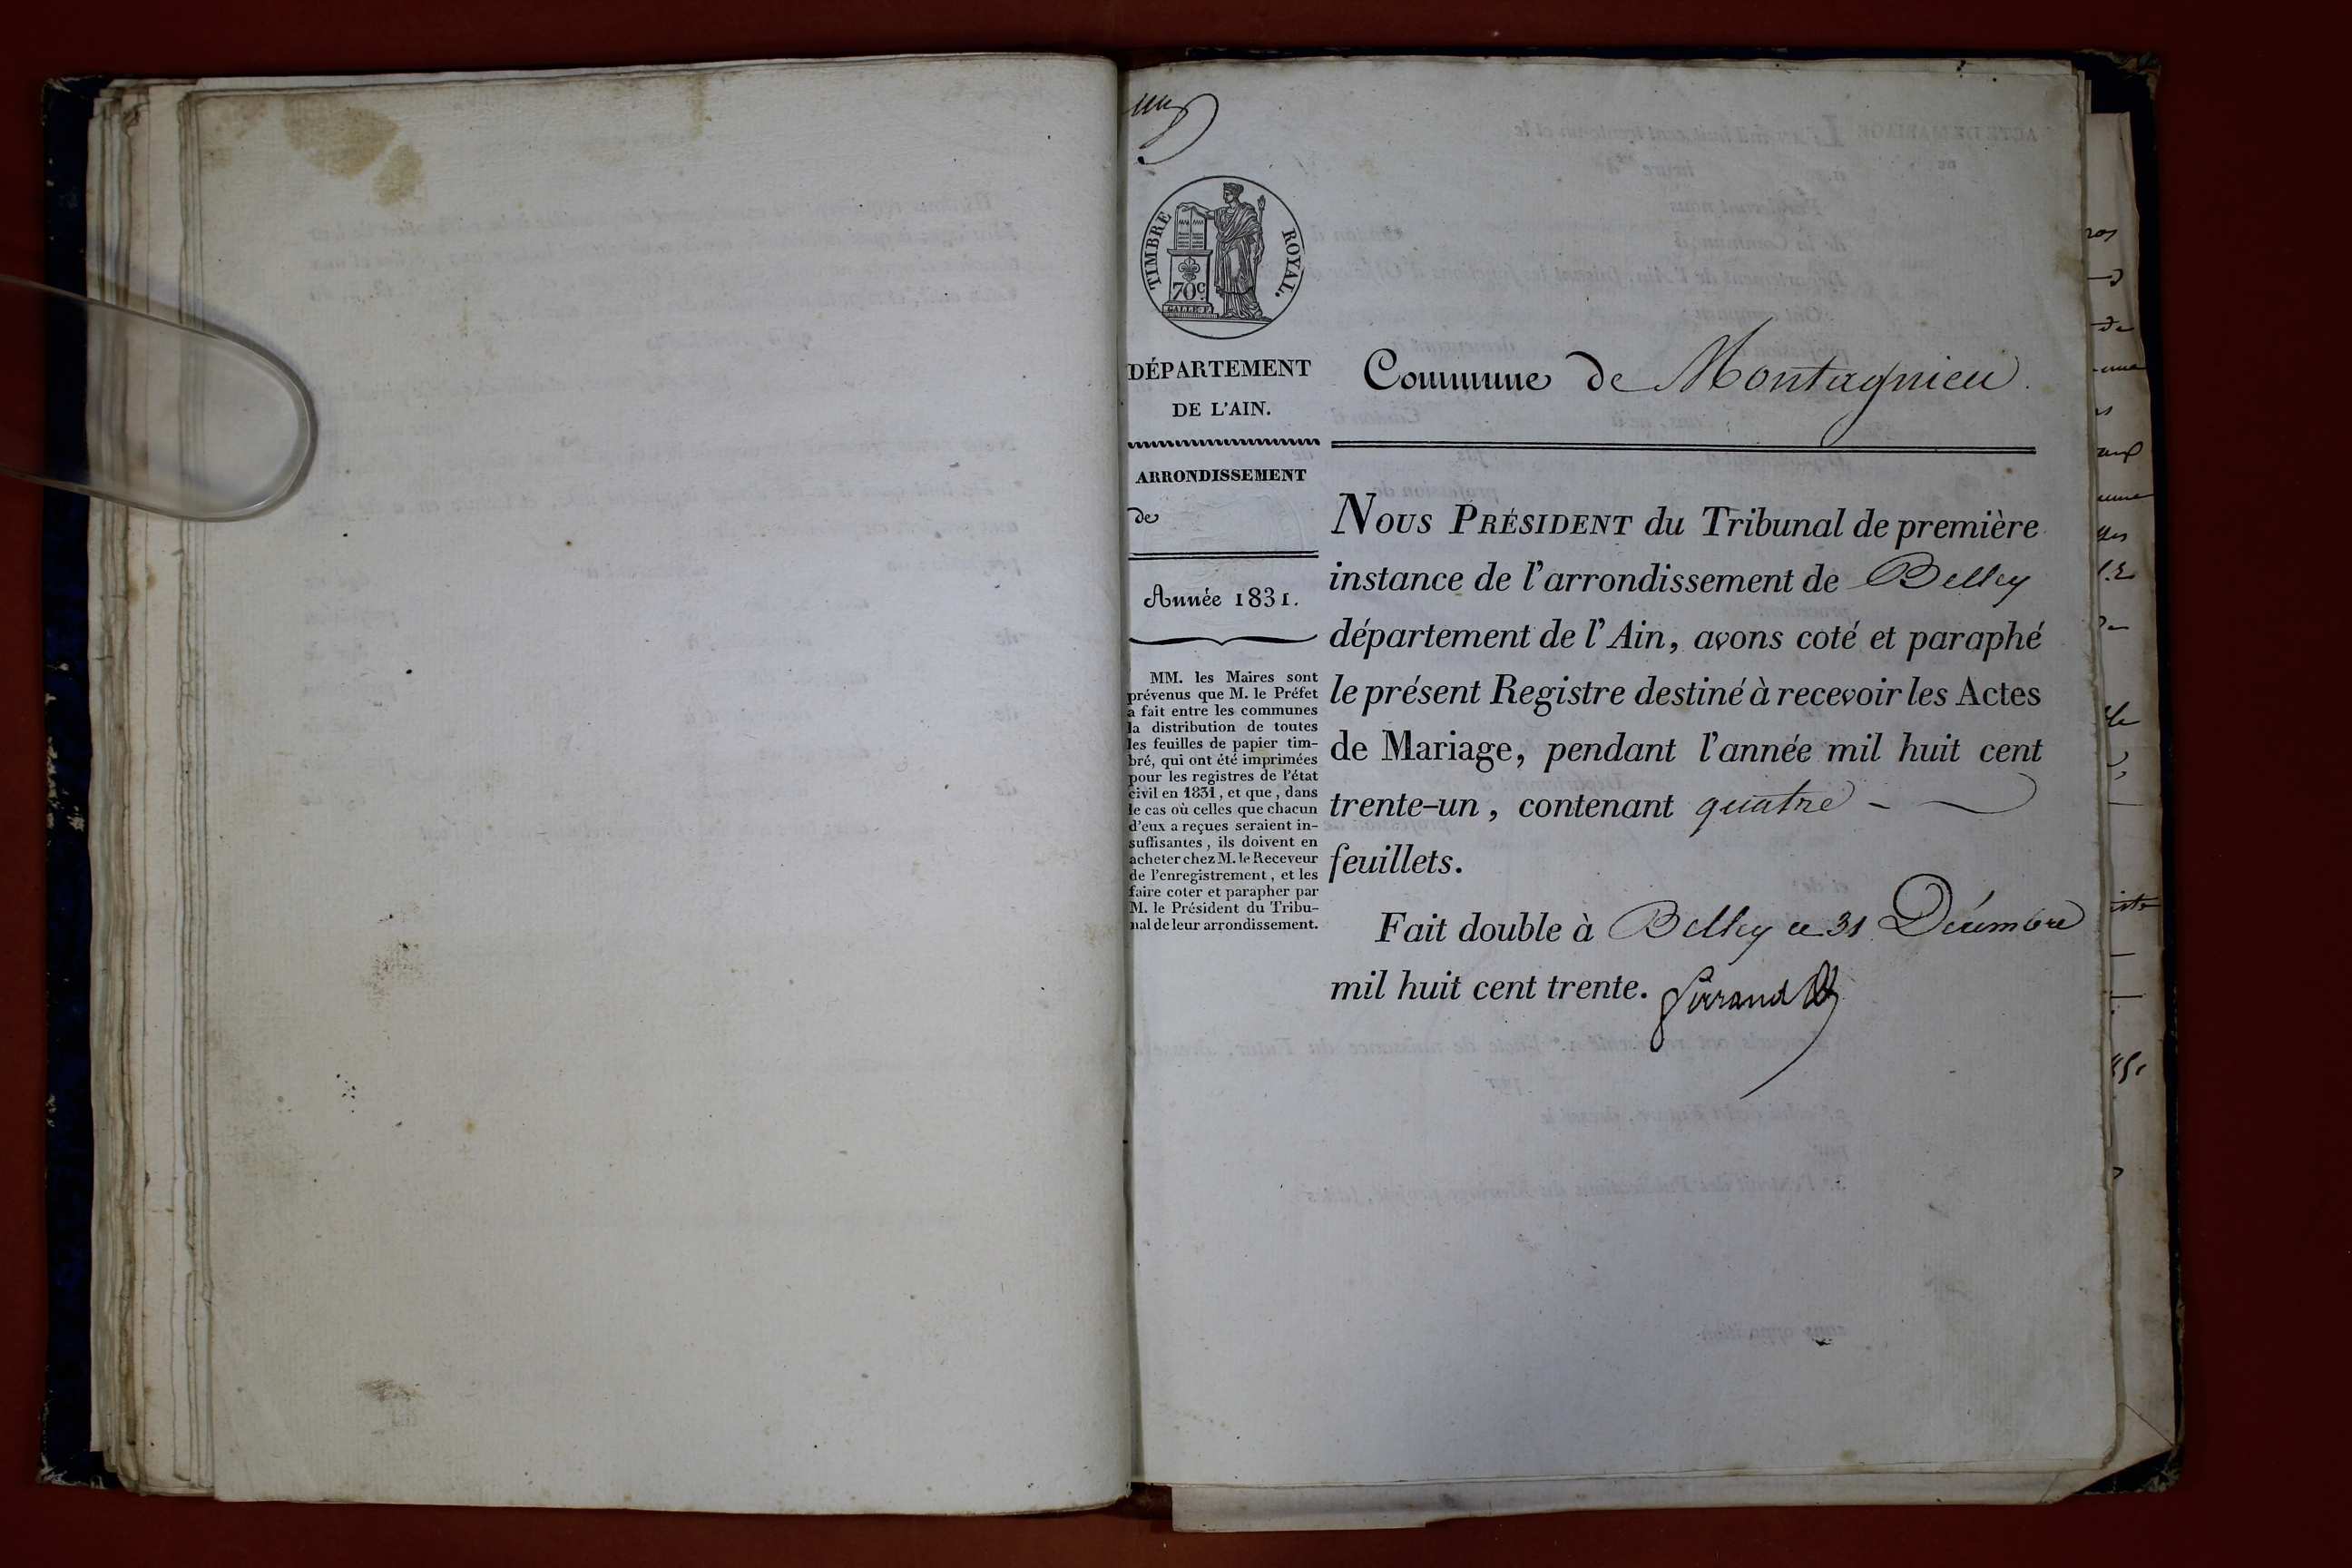 un
TIMBRE ROYAL.
70c.
DÉPARTEMENT
DE L'AIN.
ARRONDISSEMENT
de
Année 1831.
MM. les Maires sont
prévenus que M. le Préfet
a fait entre les communes
la distribution de toutes
les feuilles de papier tim-
bré, qui ont été imprimées
pour les registres de l'état
civil en 1831, et que, dans
le cas où celles que chacun
d'eux a reçues seraient in-
suffisantes, ils doivent en
acheter chez M. le Receveur
de l'enregistrement, et les
faire coter et parapher par
M. le Président du Tribu-
nal de leur arrondissement.
Commune de Montagnieu.
NOUS PRÉSIDENT du Tribunal de première
instance de l'arrondissement de Belley
département de l'Ain, avons coté et paraphé
le présent Registre destiné à recevoir les Actes
de Mariage, pendant l'année mil huit cent
trente-un, contenant quatre -
feuillets.
Fait double à Belley ce 31 Décembre
mil huit cent trente.